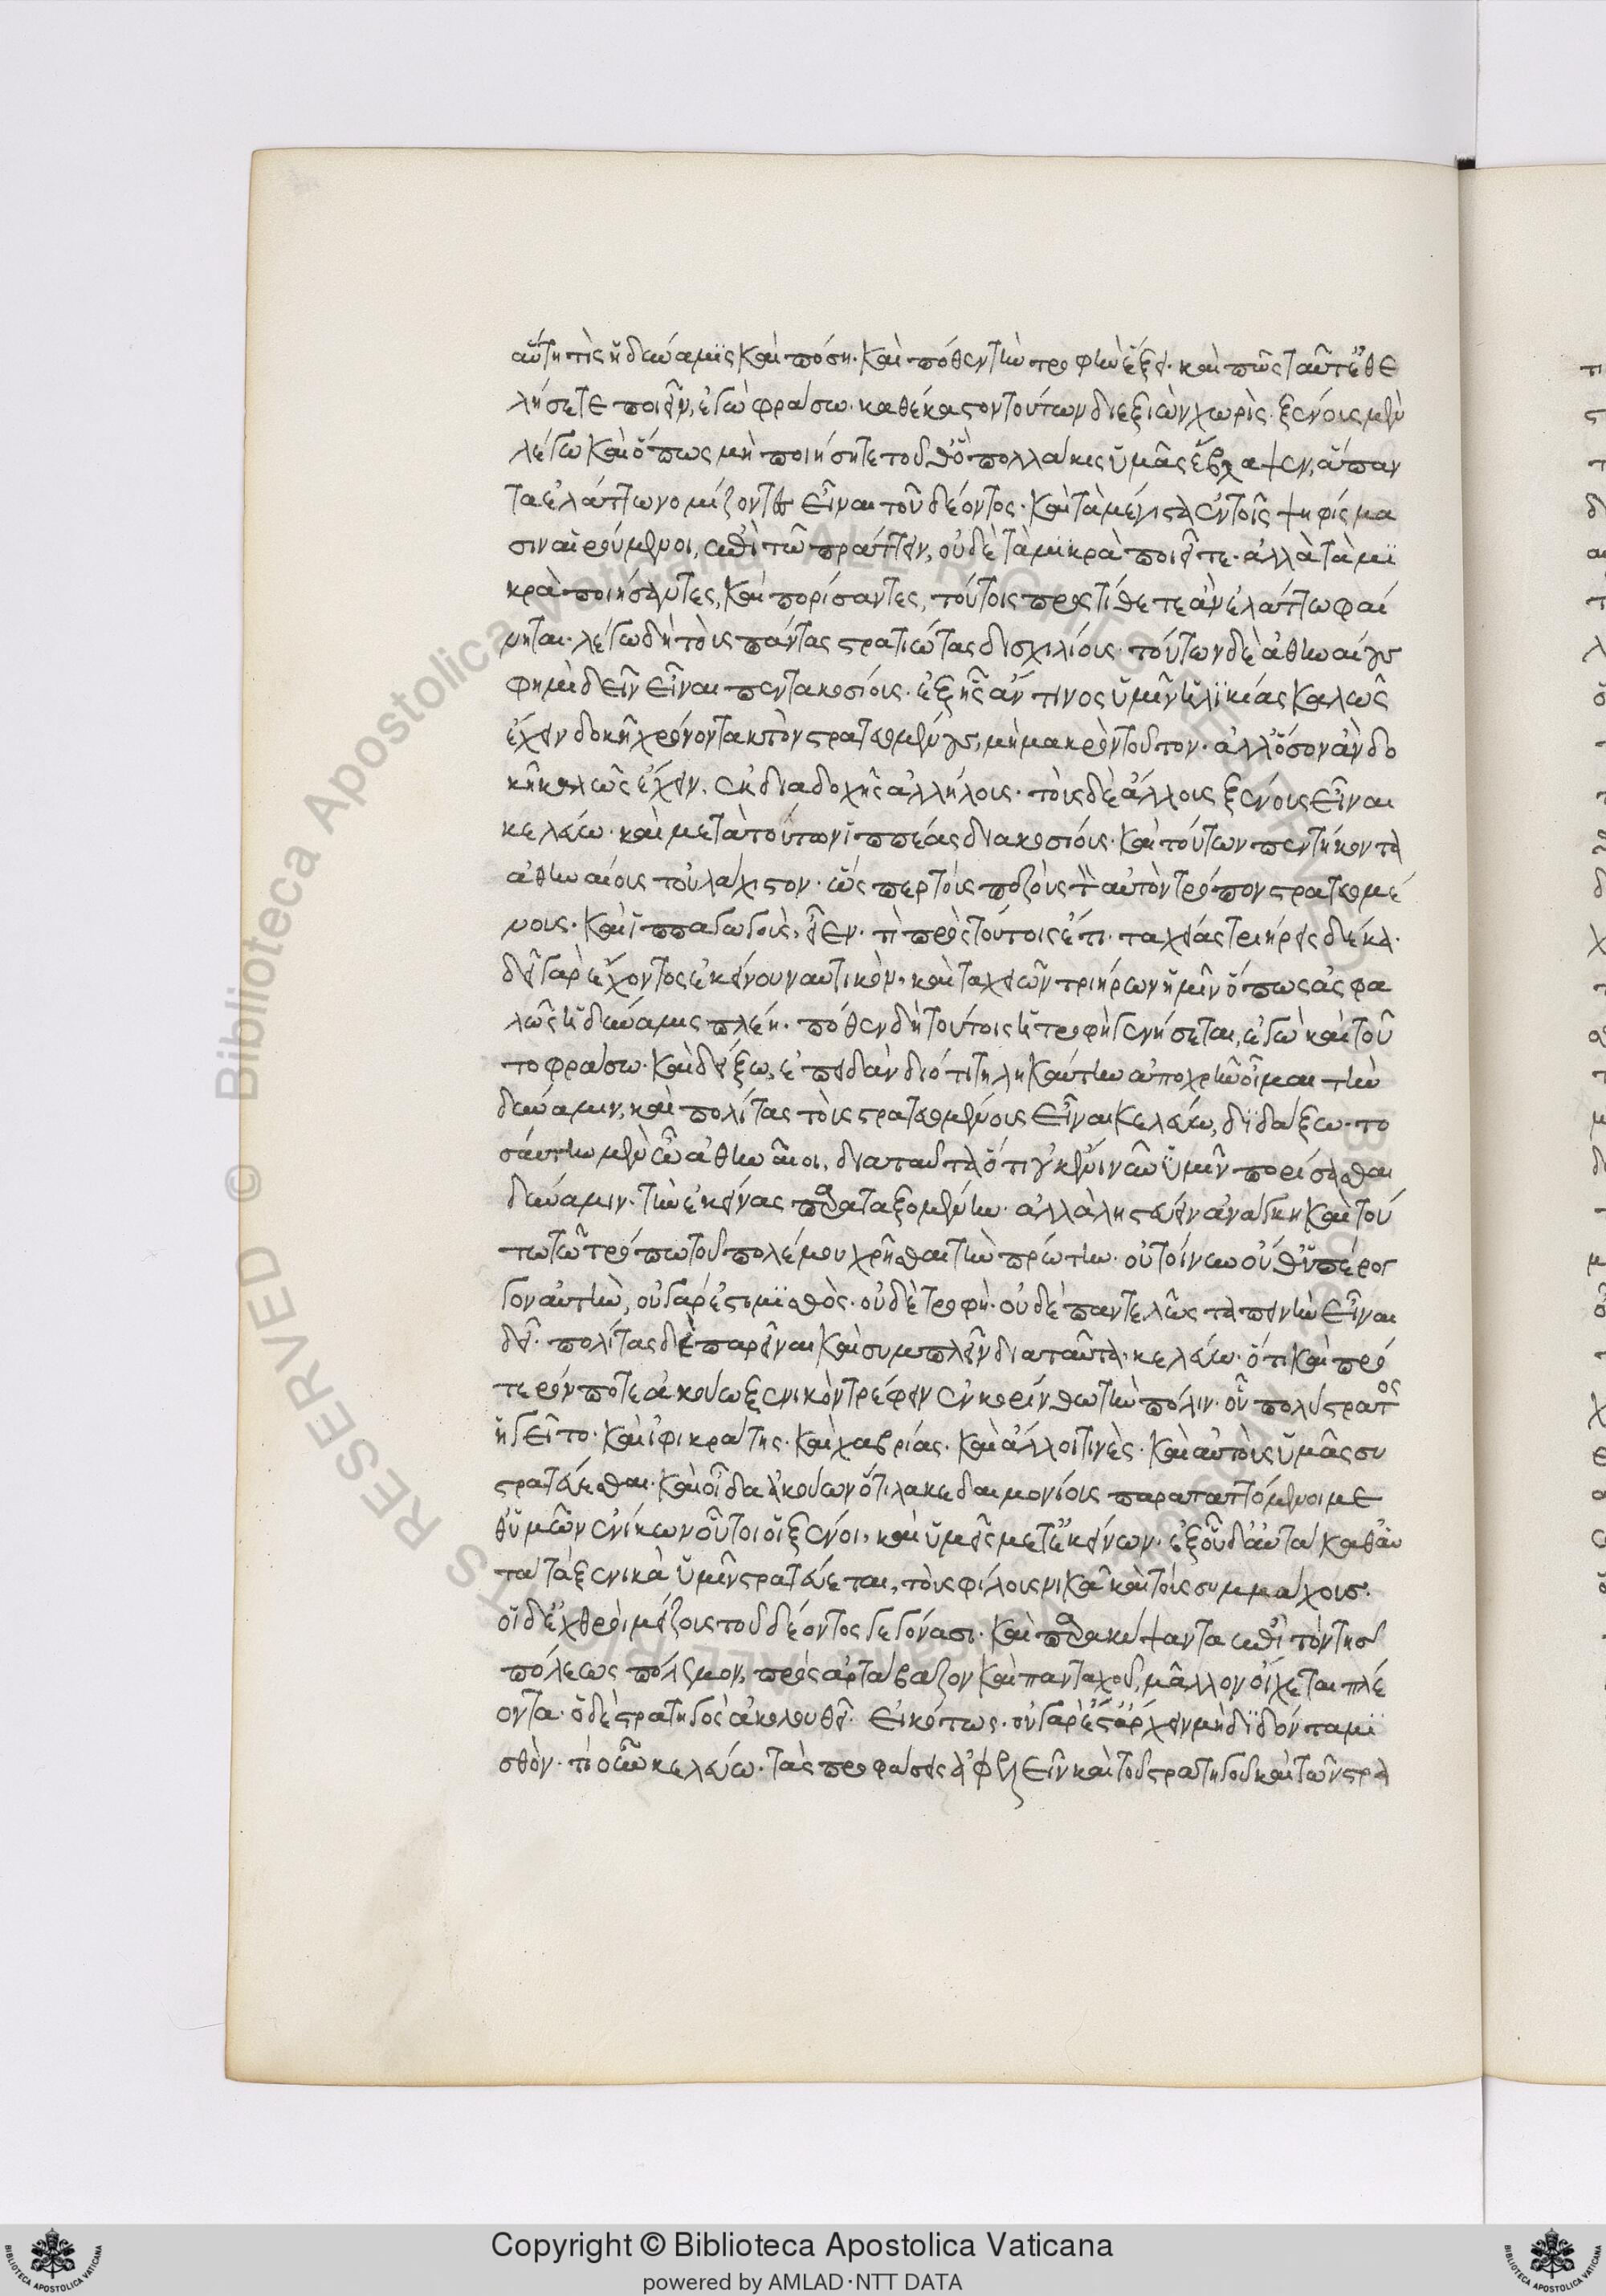 αὕτη τίς ἡ δύναμϊς καὶ πόση· καὶ πόθεν τὴν τροφὴν ἕξει· καὶ πῶς ταῦτ' ἐθε
λήσετε ποιεῖν, ἐγὼ φράσω· καθέκαστον τούτων διεξιὼν χωρίς· ξένους μὲν
λέγω καὶ ὅπως μὴ ποιήσητε τοῦθ' ὃ πολλάκις ὑμᾶς ἔβλαψεν, ἅπαν
τα ἐλάττω νομίζοντες εἶναι τοῦ δέοντος· καὶ τὰ μέγιστα ἐν τοῖς ψηφίσμα
σιν αἱρούμενοι, ἐπὶ τῶ πράττειν, οὐδὲ τὰ μϊκρὰ ποιεῖτε· ἀλλὰ τὰ μϊ
κρὰ ποιήσαντες, καὶ πορίσαντες, τούτοις προστίθετε ἂν ἐλάττω φαί
νηται· λέγω δὴ τοὺς πάντας στρατιώτας δισχιλίους· τούτων δὲ ἀθηναίους
φημὶ δεῖν εἶναι πεντακοσίους· ἐξ ἧς ἄν τινος ὑμῖν ἡλϊκίας καλῶς
ἔχειν δοκῆ χρόνον τακτὸν στρατευομένους, μὴ μακρὸν τοῦτον· ἀλλ' ὅσον ἂν δο
κῆ καλῶς ἔχειν, ἐκ διαδοχῆς ἀλλήλοις· τοὺς δὲ ἄλλους ξένους εἶναι
κελεύω· καὶ μετὰ τούτων ἱππέας διακοσίους· καὶ τούτων πεντήκοντα
ἀθηναίους τοὐλάχιστον· ὥσπερ τοὺς πεζοὺς τὸν αὐτὸν τρόπον στρατευομέ
νους· καὶ ἱππαγωγοὺς, εἶεν· τί πρὸς τούτοις ἔτι· ταχείας τριήρεις δέκα·
δεῖ γὰρ ἔχοντος ἐκείνου ναυτικὸν· καὶ ταχειῶν τριήρων ἡμῖν ὅπως ἀσφα
λῶς ἡ δύναμις πλέη· πόθεν δὴ τούτοις ἡ τροφὴ γενήσεται, ἐγὼ καὶ τοῦ
το φράσω· καὶ δείξω, ἐπειδὰν διότι τηλικαύτην ἀποχρῆν οἶμαι τὴν
δύναμιν, καὶ πολίτας τοὺς στρατευομένους εἶναι κελεύω, δϊδάξω· το
σαύτην μὲν ὦ ἀθηναῖοι, διαταῦτα ὅτι οὐκ ἔνι νῦν ὑμῖν πορίσασθαι
δύναμιν· τὴν ἐκείνας παραταξομένην· ἀλλὰ ληστεύειν ἀνάγκη καὶ τού
τω τῶ τρόπω τοῦ πολέμου χρῆσθαι τὴν πρώτην· οὐ τοίνυν οὐθ' ὑπέρογ
γον αὐτὴν, οὐ γάρ ἐστι μϊσθὸς· οὐδὲ τροφὴ· οὐδὲ παντελῶς ταπεινὴν εἶναι
δεῖ· πολίτας δὲ παρεῖναι καὶ συμπλεῖν διαταῦτα· κελεύω· ὅτι καὶ πρό
τερόν ποτε ἀκούω ξενικὸν τρέφειν ἐν κορίνθω τὴν πόλιν· οὗ πολύστρατος
ἡγεῖτο· καὶ ἰφικράτης· καὶ χαβρίας· καὶ ἄλλοι τινὲς· καὶ αὐτοὺς ὑμᾶς συ
στρατεύεσθαι· καὶ οἶδα ἀκούων ὅτι λακεδαιμονίους παραταττόμενοι με
θ' ὑμῶν ἐνίκων οὗτοι οἱ ξένοι, καὶ ὑμεῖς μετ' ἐκείνων· ἐξ οὗ δ' αὐτὰ καθ' αὑ
τὰ τὰ ξενικὰ ὑμῖν στρατεύεται, τοὺς φίλους νικᾶ καὶ τοὺς συμμάχους·
οἱ δ' ἐχθροὶ μείζους τοῦ δέοντος γεγόνασι· καὶ παρακύψαντα ἐπὶ τὸν τῆσ
πόλεως πόλεμον, πρὸς ἀρτάβαζον καὶ πανταχοῦ, μᾶλλον οἴχεται πλέ
οντα· ὁ δὲ στρατηγὸς ἀκολουθεῖ· εἰκότως· οὐ γάρ ἐστ' ἄρχειν μὴ δϊδόντα μϊ
σθὸν· τί οὖν κελεύω· τὰς προφάσεις ἀφελεῖν καὶ τοῦ στρατηγοῦ καὶ τῶν στρα
Copyright © Biblioteca Apostolica Vaticana
powered by AMLAD·NTT DATA